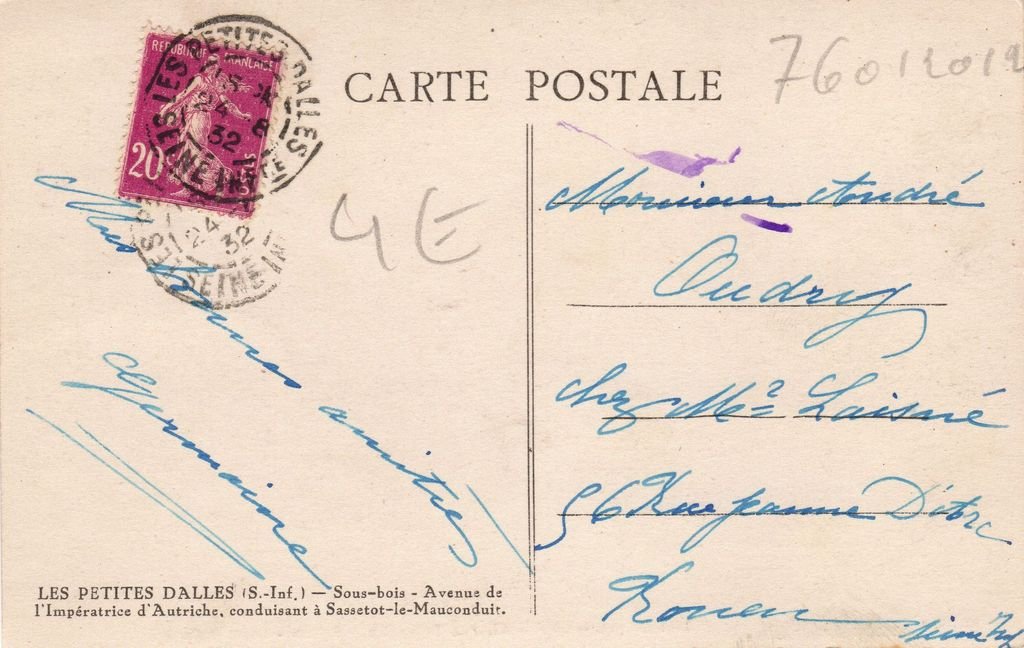 REPUBLIQUE FRANÇAISE
20c
LES PETITES DALLES
24
8
32
SEINE INFRE
24
32
SEINE IN
CARTE POSTALE
76012012
4E
Mes bonnes amitiés
Germaine
Monsieur André
Oudry
chez Mr Laisné
56 Rue Jeanne D'Arc
Rouen
Seine Inf
LES PETITES DALLES (S.-Inf.) — Sous-bois - Avenue de
l'Impératrice d'Autriche, conduisant à Sassetot-le-Mauconduit.